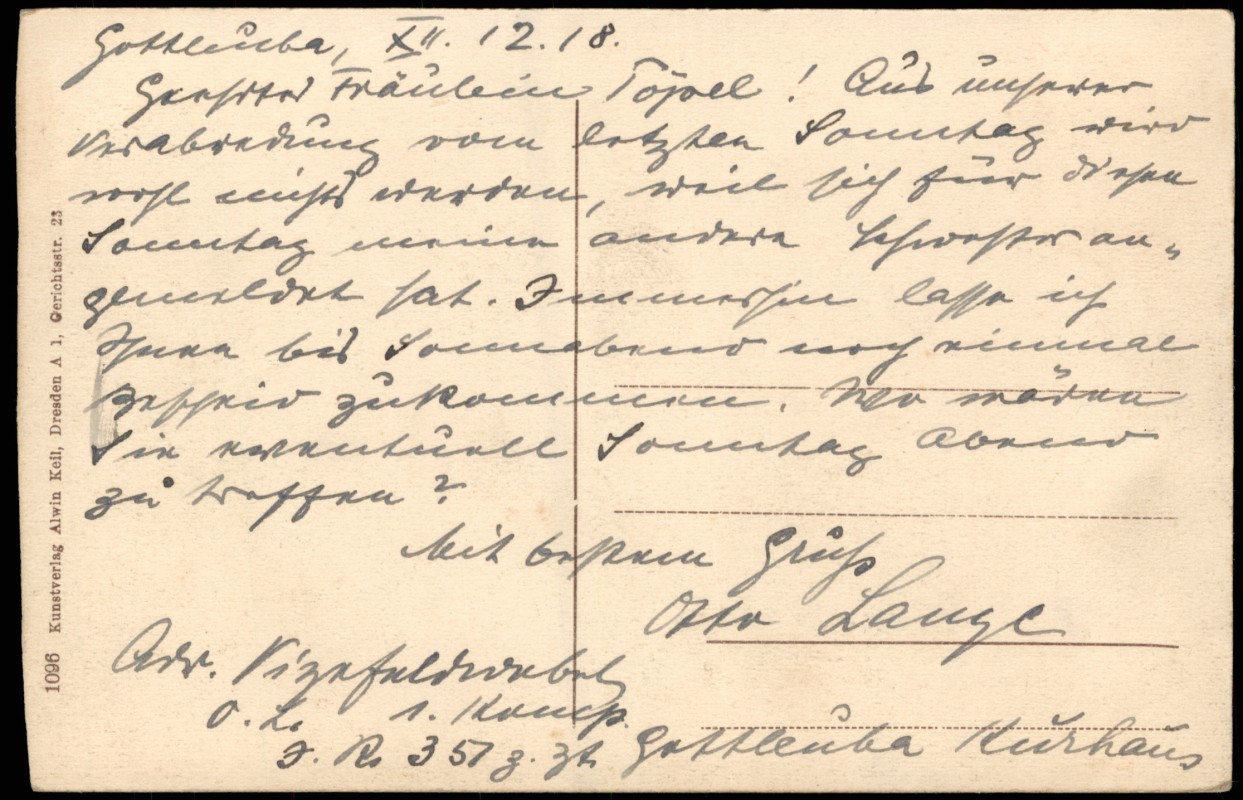 Gottleuba, XII. 12.18.
Geehrtes Fräulein Töpel! Aus unserer
Verabredung vom letzten Sonntag wird
wohl nichts werden, weil sich für diesen
Sonntag meine andere Schwester an-
gemeldet hat. Immerhin lasse ich
Ihnen bis Sonnabend noch einmal
Bescheid zukommen. Wo wären
Sie eventuell Sonntag Abend
zu treffen?
Mit bestem Gruß
Otto Lange
Adr. Vizefeldwebel
O. L. 1. Komp.
I. R. 351 z. Zt. Gottleuba Kurhaus
1096 Kunstverlag Alwin Keil, Dresden A 1, Gerichtsstr. 23